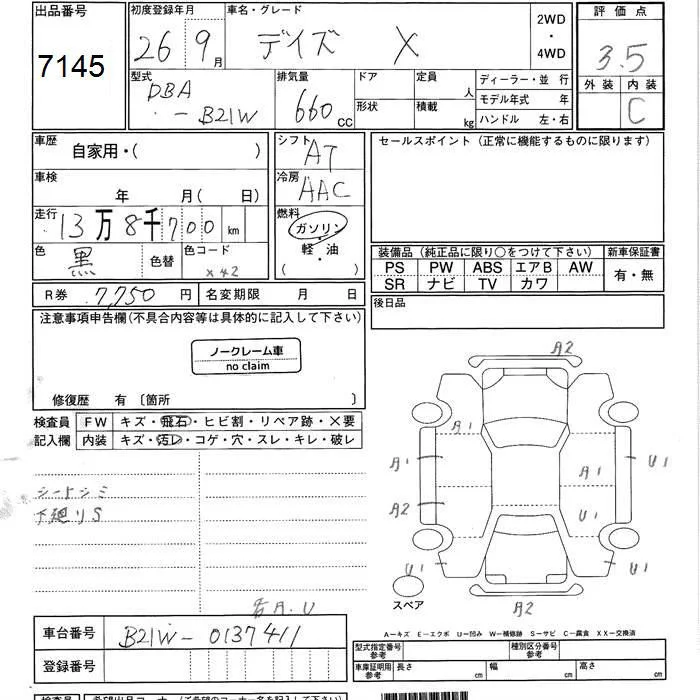 出品番号
7145
初度登録年月
26 9月
車名・グレード
デイズ X
2WD
・
4WD
評価点
3.5
外装 内装
C
型式
DBA
- B21W
排気量
660 cc
ドア
形状
定員 人
積載 kg
ディーラー・並行
モデル年式 年
ハンドル 左・右
車歴
自家用・( )
車検
年 月( 日)
走行
13万8千700km
色
黒
色替
色コード
x42
シフト
AT
冷房
AAC
燃料
ガソリン
・
軽・油
( )
セールスポイント(正常に機能するものに限ります)
装備品(純正品に限り○をつけて下さい)
PS PW ABS エアB AW
SR ナビ TV カワ
新車保証書
有・無
R券 7,750円
名変期限 月 日
後日品
注意事項申告欄(不具合内容等は具体的に記入して下さい)
ノークレーム車
no claim
修復歴 有〔箇所 〕
検査員
記入欄
FW キズ・飛石・ヒビ割・リペア跡・×要
内装 キズ・汚レ・コゲ・穴・スレ・キレ・破レ
シートシミ
下廻りS
若A.U
A2
A1
A1
A1
U1
A2
U1
U1
U1
A2
スペア
A−キズ E−エクボ U−凹み W−補修跡 S−サビ C−腐食 XX−交換済
車台番号
B21W-0137411
登録番号
型式指定番号
参考
種別区分番号
参考
車庫証明用
参考
長さ cm
幅 cm
高さ cm
検査員
希望出品コーナー(ご希望のコーナー名を記入